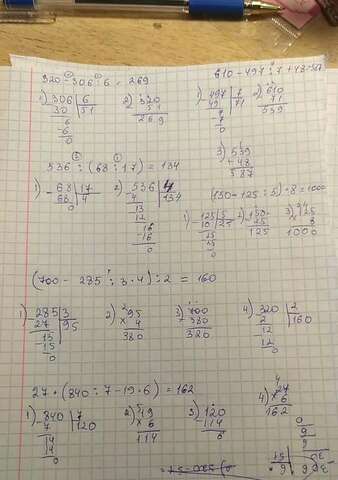 320 - 306 : 6 = 269
1) 306 | 6
30 | 51
6
- 6
0
2) 320
51
269
610 - 497 : 7 + 48 = 587
1) 497 | 7
49 | 71
7
- 7
0
2) 610
71
539
3) 539
+ 48
587
536 : (68 : 17) = 134
1) - 68 | 17
68 | 4
0
2) - 536 | 4
4 | 134
13
12
- 16
16
0
(150 - 125 : 5) · 8 = 1000
1) 125 | 5
10 | 25
25
25
0
2) 150
- 25
125
3) 125
8
1000
(700 - 285 : 3 · 4) : 2 = 160
1) 285 | 3
27 | 95
15
- 15
0
2) 95
× 4
380
3) 700
- 380
320
4) 320 | 2
2 | 160
12
12
0
27 · (840 : 7 - 19 · 6) = 162
1) - 840 | 7
7 | 120
14
14
0
2) 19
× 6
114
3) 120
- 114
6
4) 27
× 6
162